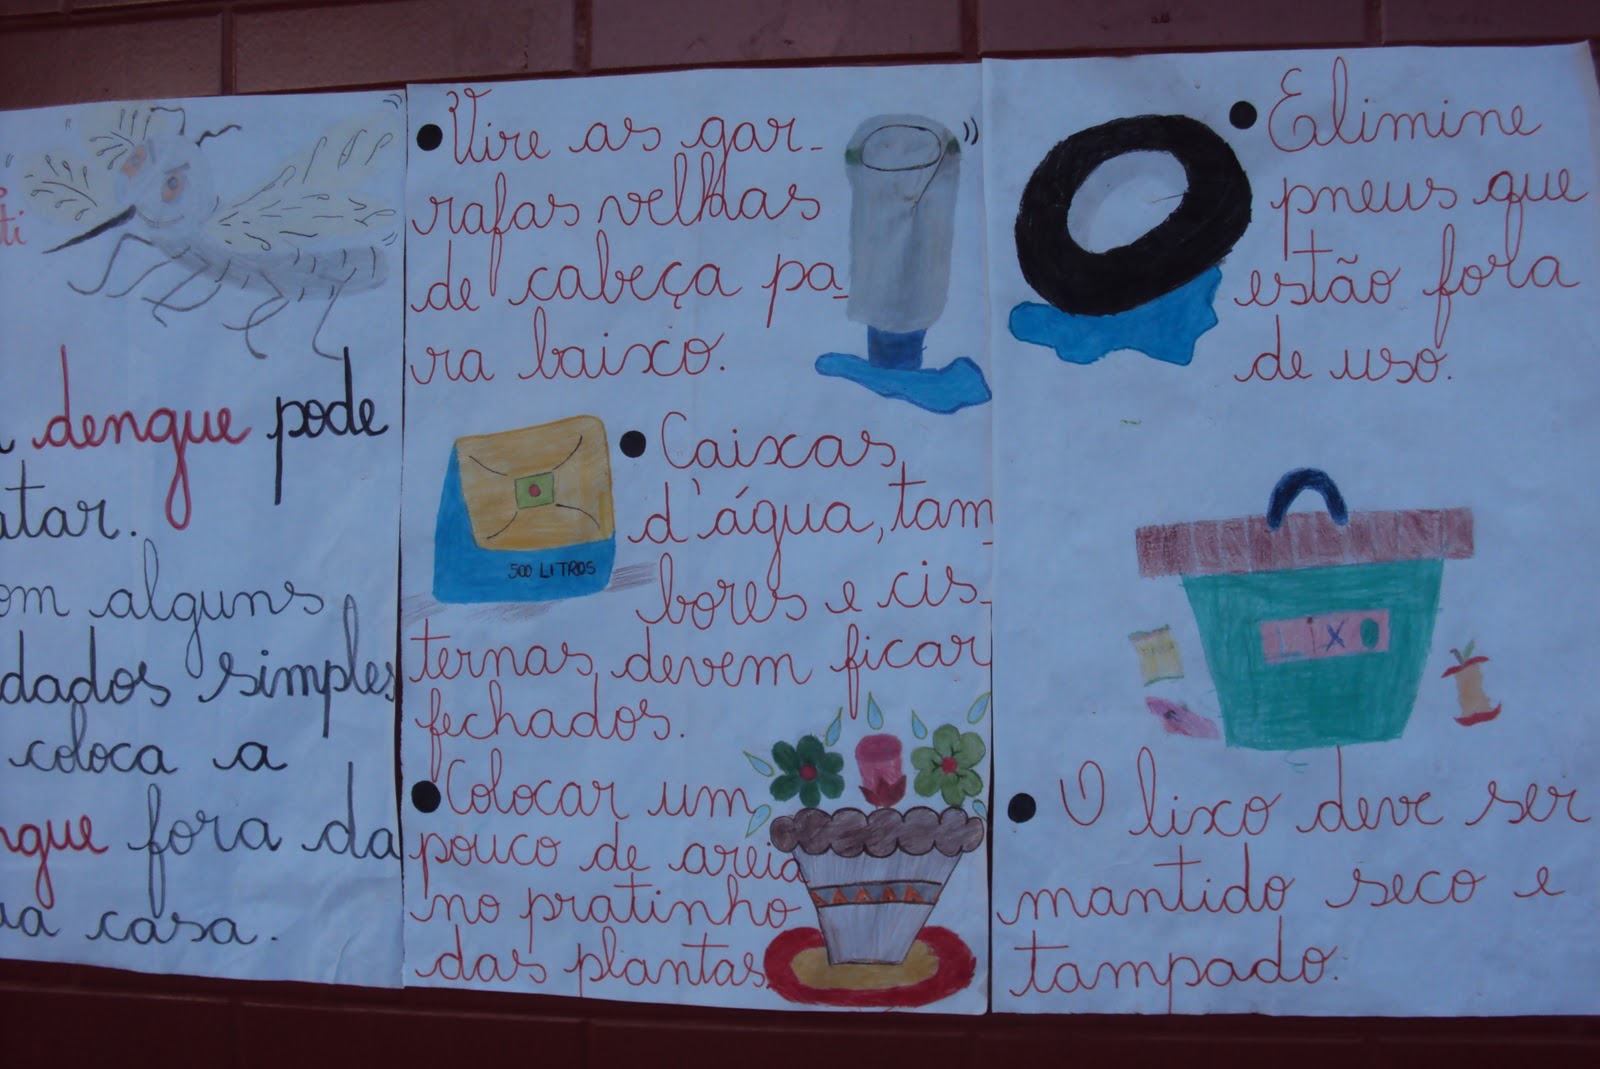 ti
dengue pode
atar.
om alguns
dados simples
coloca a
ngue fora da
ua casa.
Vire as gar-
rafas velhas
de cabeça pa-
ra baixo.
Caixas
d'água, tam-
bores e cis-
ternas devem ficar
fechados.
500 LITROS
Colocar um
pouco de areia
no pratinho
das plantas.
Elimine
pneus que
estão fora
de uso.
LIXO
O lixo deve ser
mantido seco e
tampado.